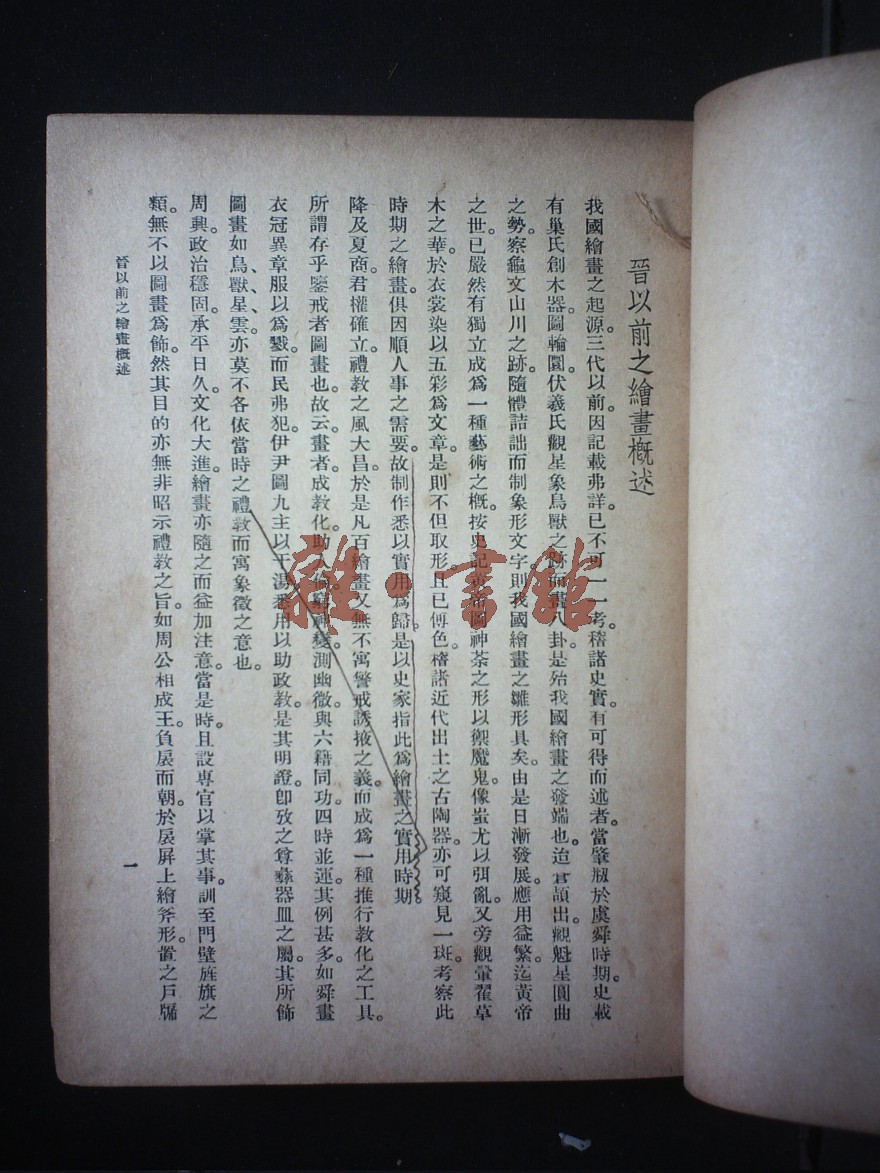 晉以前之繪畫概述
我國繪畫之起源。三代以前。因記載弗詳。已不可一一考。稽諸史實。有可得而述者。當肇刱於虞舜時期。史載
有巢氏創木器。圖輪圜。伏羲氏觀星象鳥獸之跡。而畫八卦。是殆我國繪畫之發端也。迨倉頡出。觀魁星圓曲
之勢。察龜文山川之跡。隨體詰詘而制象形文字。則我國繪畫之雛形具矣。由是日漸發展。應用益繁。迄黃帝
之世。已嚴然有獨立成為一種藝術之概。按史記黃帝圖神荼之形以禦魔鬼。像蚩尤以弭亂。又旁觀翬翟草
木之華。於衣裳染以五彩為文章。是則不但取形且已傅色。稽諸近代出土之古陶器。亦可窺見一斑。考察此
時期之繪畫。俱因順人事之需要。故制作悉以實用為歸。是以史家指此為繪畫之實用時期
降及夏商。君權確立。禮教之風大昌。於是凡百繪畫。又無不寓警戒誘掖之義。而成為一種推行教化之工具。
所謂存乎鑒戒者圖畫也。故云。畫者。成教化。助人倫。窮神變。測幽微。與六籍同功。四時並運。其例甚多。如舜畫
衣冠異章服以為戮。而民弗犯。伊尹圖九主以干湯。悉用以助政教。是其明證。卽攷之尊彝器皿之屬。其所飾
圖畫如鳥、獸、星、雲。亦莫不各依當時之禮教而寓象徵之意也。
周興。政治穩固。承平日久。文化大進。繪畫亦隨之而益加注意。當是時。且設專官以掌其事。訓至門壁旌旗之
類。無不以圖畫為飾。然其目的亦無非昭示禮教之旨。如周公相成王。負扆而朝。於扆屏上繪斧形。置之戶牖
晉以前之繪畫概述
一
雜·書館